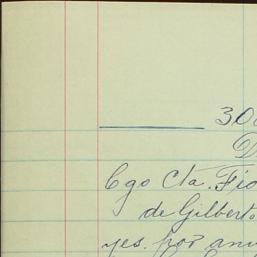 30
Cgo Cta. Fio
de Gilberto
yes. por